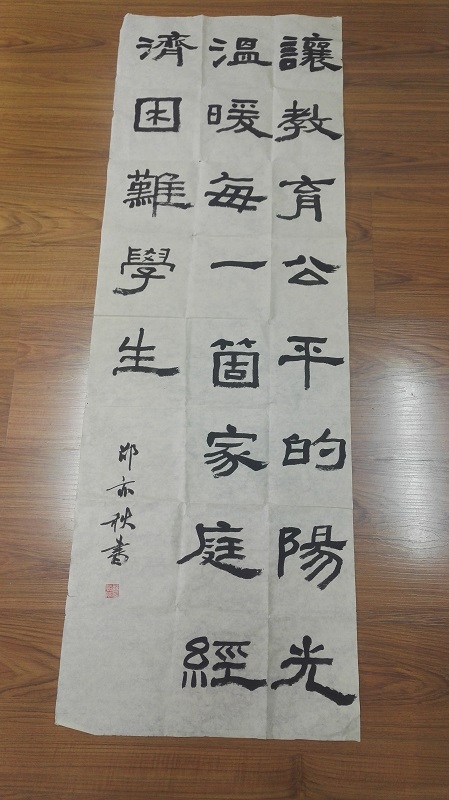 讓教育公平的陽光
溫暖每一箇家庭經
濟困難學生
邵亦秋書